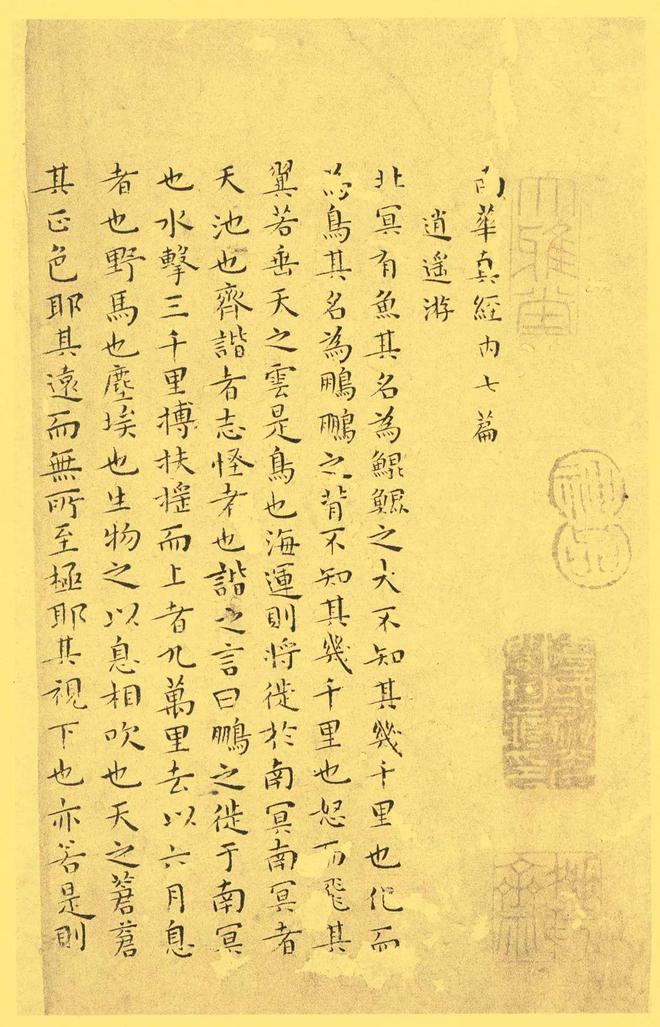 大雅堂
神品
南華真經內七篇
逍遙游
北冥有魚其名為鯤鯤之大不知其幾千里也化而
為鳥其名為鵬鵬之背不知其幾千里也怒而飛其
翼若垂天之雲是鳥也海運則將徙於南冥南冥者
天池也齊諧者志怪者也諧之言曰鵬之徙于南冥
也水擊三千里摶扶搖而上者九萬里去以六月息
者也野馬也塵埃也生物之以息相吹也天之蒼蒼
其正色耶其遠而無所至極耶其視下也亦若是則